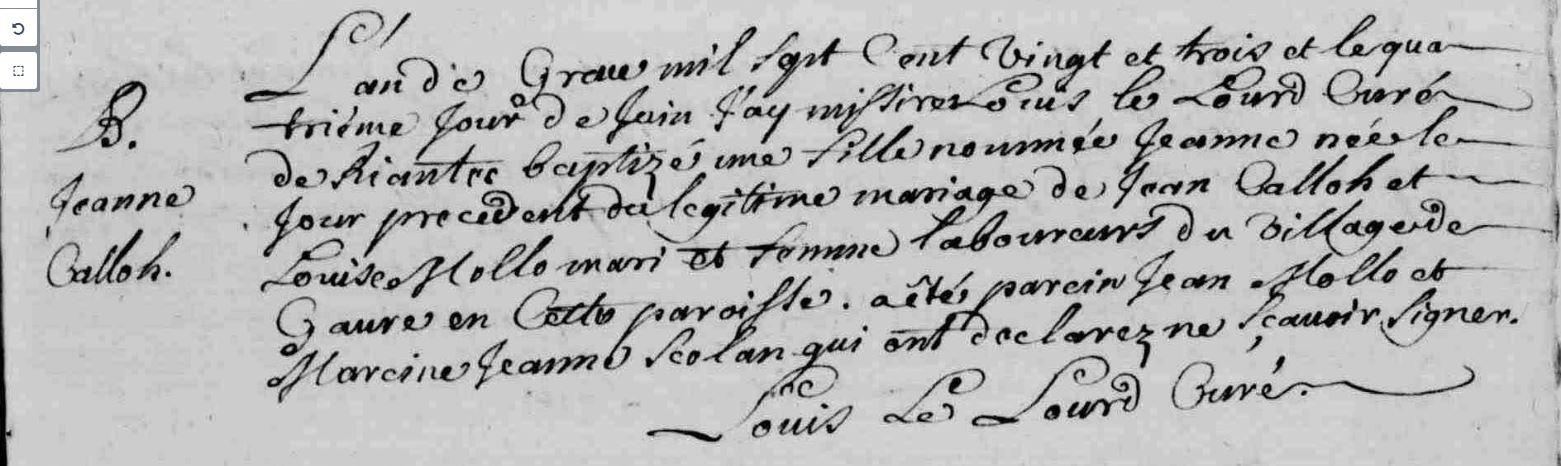 L'an de Grace mil sept Cent Vingt et trois et le qua
B.
triéme Jour de Juin J'ay missire Louis le Lourd Curé
de Riantec baptizé une fille nommée Jeanne née le
Jeanne
Jour precedent du legitime mariage de Jean Calloh et
Calloh.
Louise Mollo mari et femme laboureurs du Village de
Gavre en Cette paroisse. a êté parein Jean Mollo et
Mareine Jeanne Scolan qui ont declarez ne Sçavoir Signer.
Louis Le Lourd Curé.